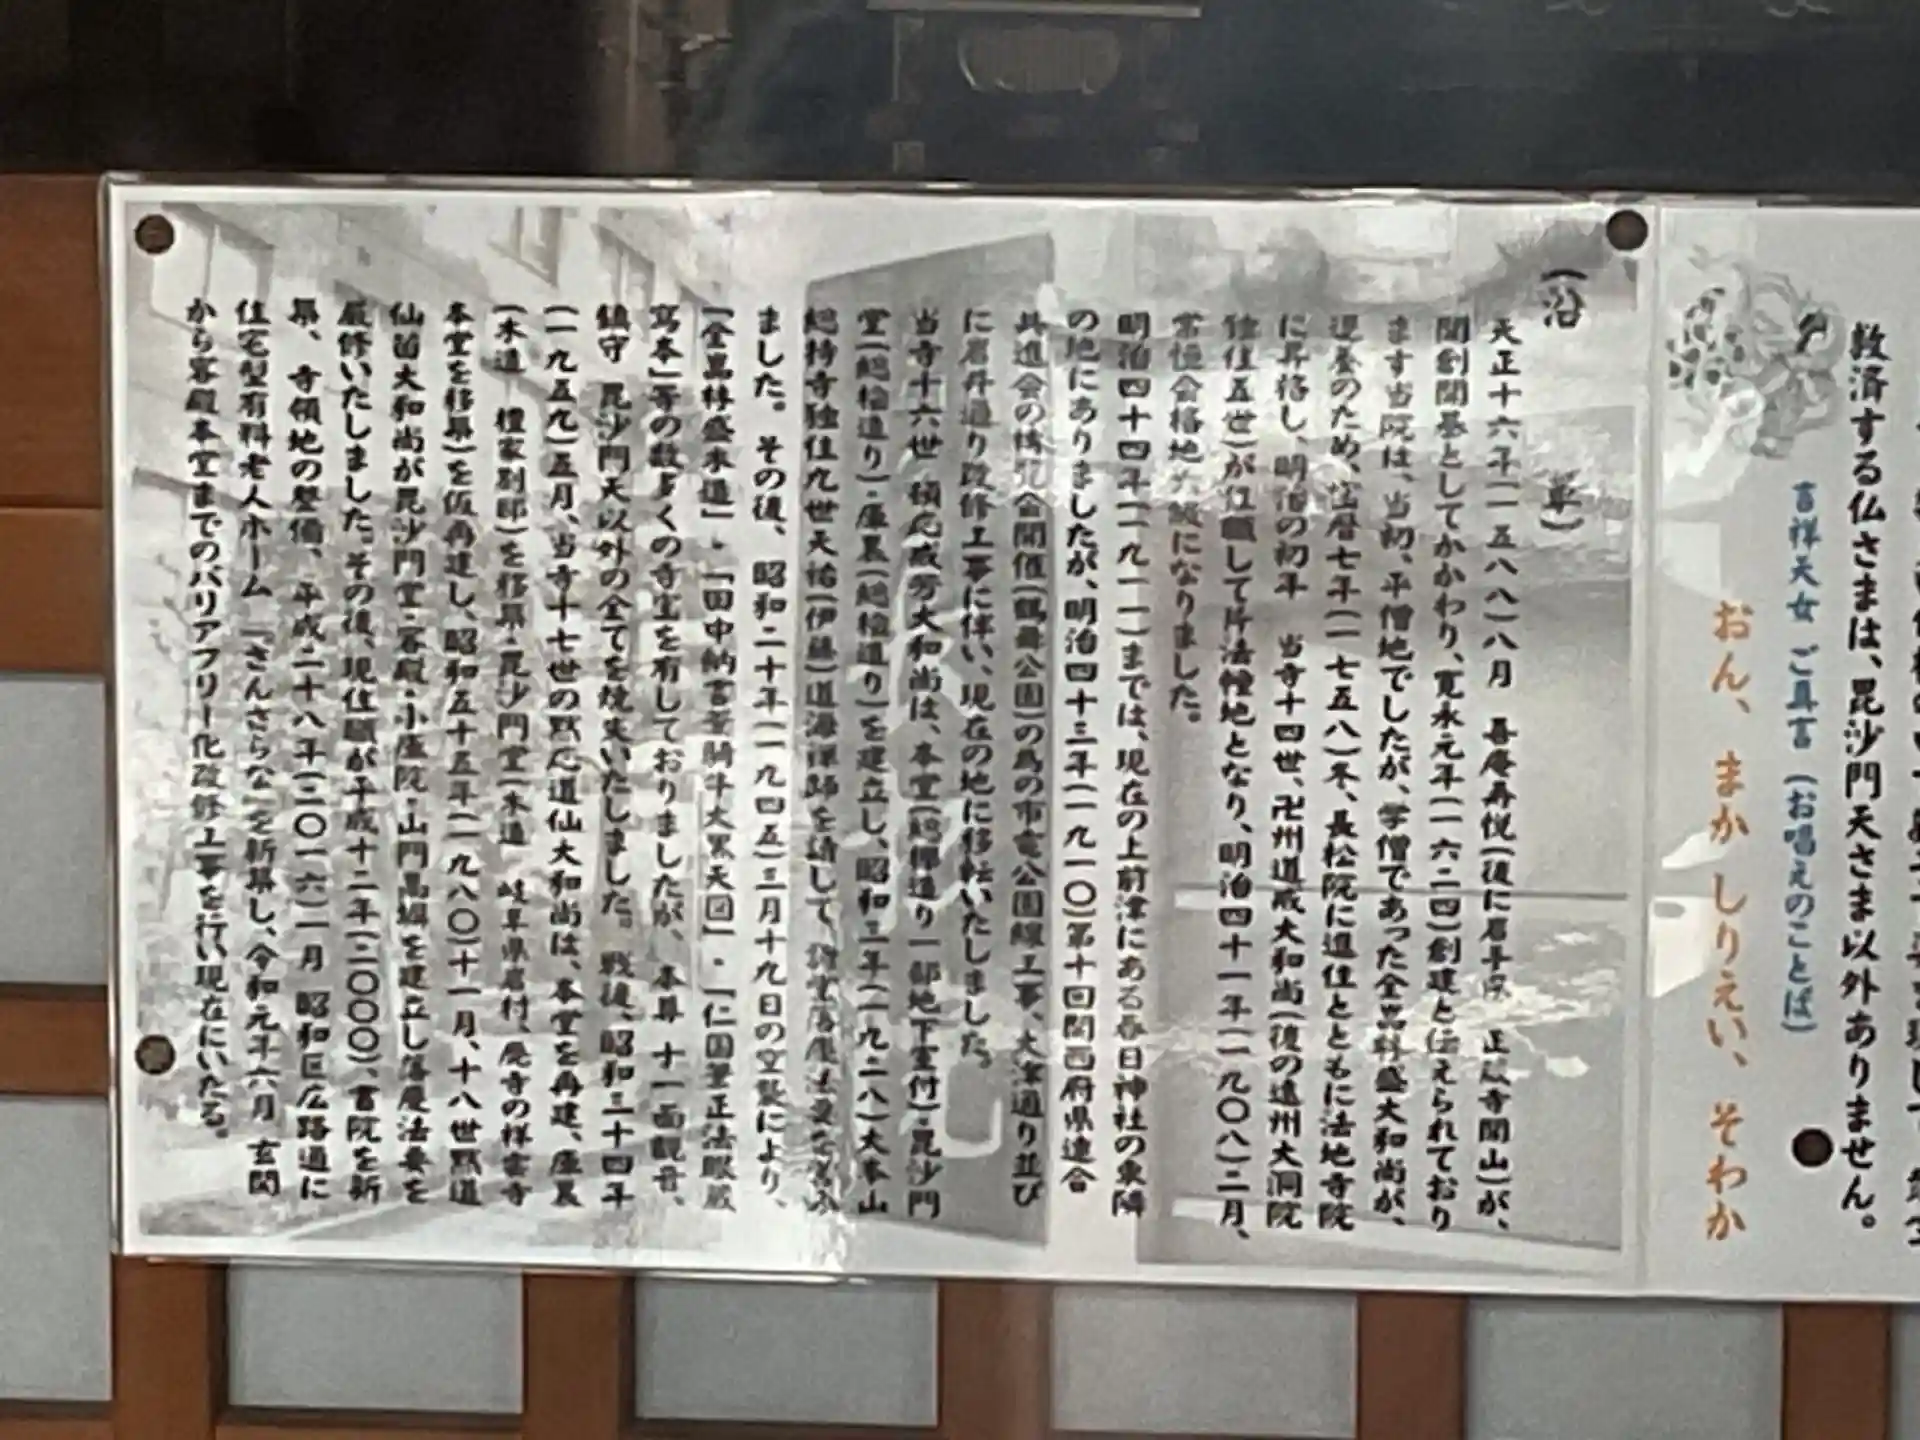 救済する仏さまは、毘沙門天さま以外ありません。
吉祥天女 ご真言 (お唱えのことば)
おん、まか しりえい、そわか
(沿 革)
天正十六年(一五八八)八月
開創開基としてかかわり、寛永元年(一六二四)創建と伝えられており
ます当院は、当初、平僧地でしたが、学僧であった全嵓林盛大和尚が、
ため、宝暦七年(一七五八)冬、長松院に進住とともに法地寺院
に昇格し、明治の初年 当寺十四世、卍州道戒大和尚(後の遠州大洞院
独住五世)が住職して片法幢地となり、明治四十一年(一九〇八)二月、
常恒会格地 級になりました。
明治四十四年(一九一一)までは、現在の上前津にある春日神社の東隣
の地にありましたが、明治四十三年(一九一〇)第十回関西府県連合
共進会の博覧会開催(鶴舞公園)の為の市電公園線工事、大津通り並び
に岩井通り改修工事に伴い、現在の地に移転いたしました。
当寺十六世 大和尚は、本堂(総欅造り一部地下室付)・毘沙門
堂(総桧造り)・庫裏(総桧造り)を建立し、昭和三年(一九二八)大本山
総持寺独住九世天祐(伊藤)道海禅師を請して、
ました。その後、昭和二十年(一九四五)三月十九日の空襲により、
「全嵓林盛木造」・「田中訥言筆騎牛大黒天図」・「仁図筆正法眼蔵
写本」等の数多くの寺宝を有しておりましたが、本尊 十一面観音、
鎮守 毘沙門天以外の全てを焼失いたしました。戦後、昭和三十四年
(一九五九)五月、当寺十七世の黙応道仙大和尚は、本堂を再建、庫裏
(木造 檀家別邸)を移築・毘沙門堂(木造 岐阜県岩村、廃寺の祥雲寺
本堂を移築)を仮再建し、昭和五十五年(一九八〇)十一月、十八世黙道
仙苗大和尚が毘沙門堂・客殿・小座院・山門高塀を建立し落慶法要を
厳修いたしました。その後、現住職が平成十二年(二〇〇〇)、書院を新
築、寺領地の整備、平成二十八年(二〇一六)一月 昭和区広路通に
住宅型有料老人ホーム「さんさらな」を新築し、令和元年六月 玄関
から客殿本堂までのバリアフリー化改修工事を行い現在にいたる。